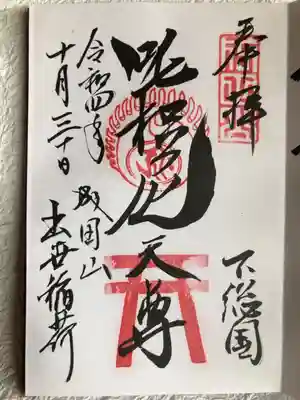 奉拝
下総国
吒枳尼天尊
成田山
出世稲荷
令和四年
十月三十日